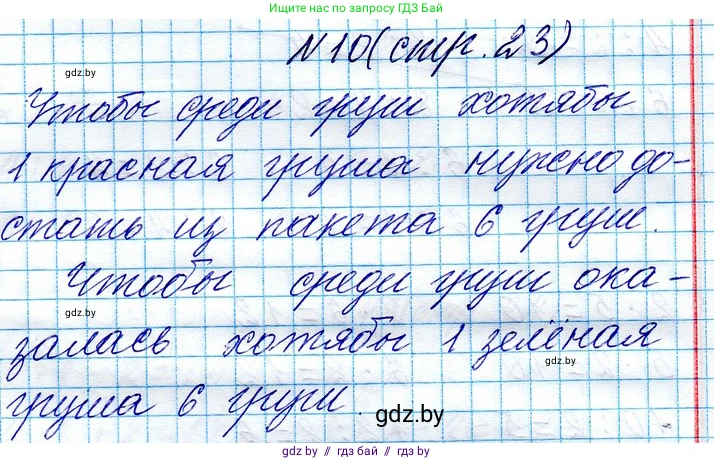 Ищите нас на сайте ГДЗ Бай
N10(стр.23)
gdz.by
Чтобы среди груш хотябы
1 красная груша нужно до-
стать из пакета 6 груш.
Чтобы среди груш ока-
gdz.by
залась хотябы 1 зелёная
gdz.by
груша 6 груш.
gdz.by
gdz.by // гдз бай // гдз.бел